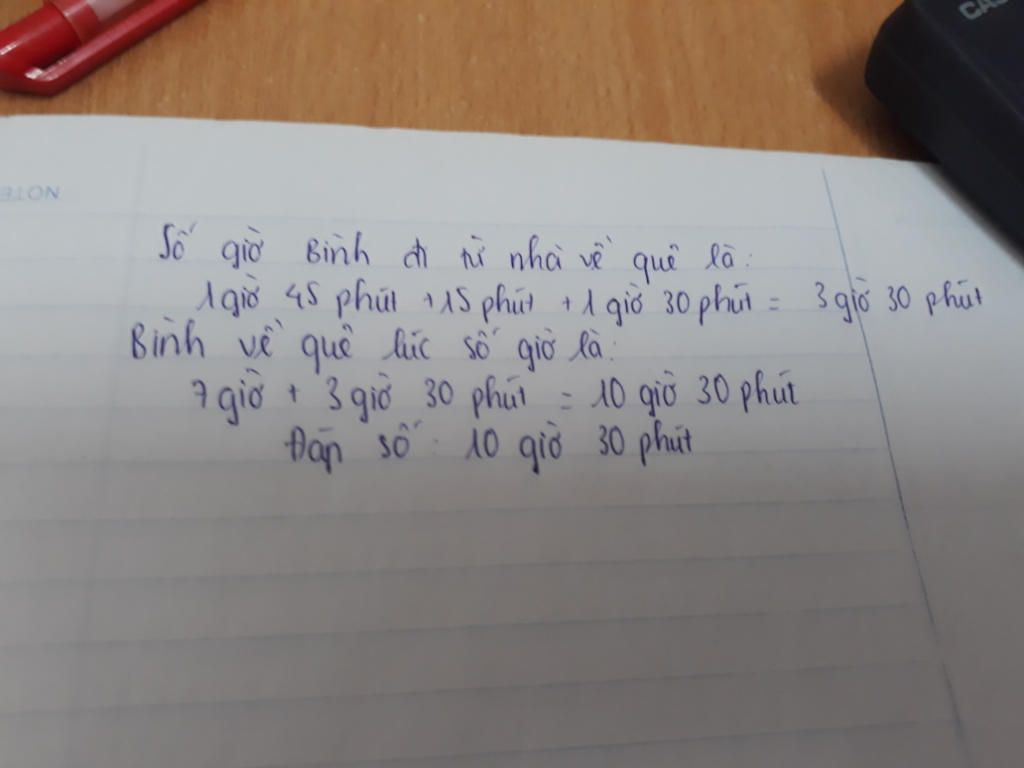 NOTE
CAS
Số giờ Bình đi từ nhà về quê là:
1 giờ 45 phút + 15 phút + 1 giờ 30 phút = 3 giờ 30 phút
Bình về quê lúc số giờ là:
7 giờ + 3 giờ 30 phút = 10 giờ 30 phút
Đáp số: 10 giờ 30 phút